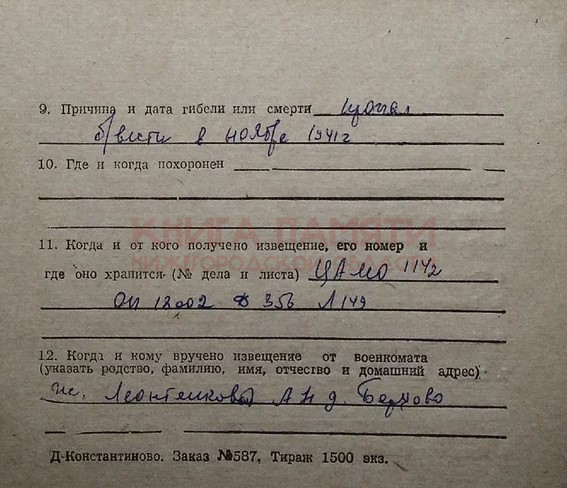 9. Причина и дата гибели или смерти пропал
б/вести в ноябре 1941г
10. Где и когда похоронен
КНИГА ПАМЯТИ
НИЖЕГОРОДСКОЙ ОБЛАСТИ
11. Когда и от кого получено извещение, его номер и
где оно хранится (№ дела и листа) ЦАМО 1142
оп 18002 д 356 л 149
12. Когда и кому вручено извещение от военкомата
(указать родство, фамилию, имя, отчество и домашний адрес)
Леонтенковой А Н д.
Д-Константиново. Заказ №587, Тираж 1500 экз.